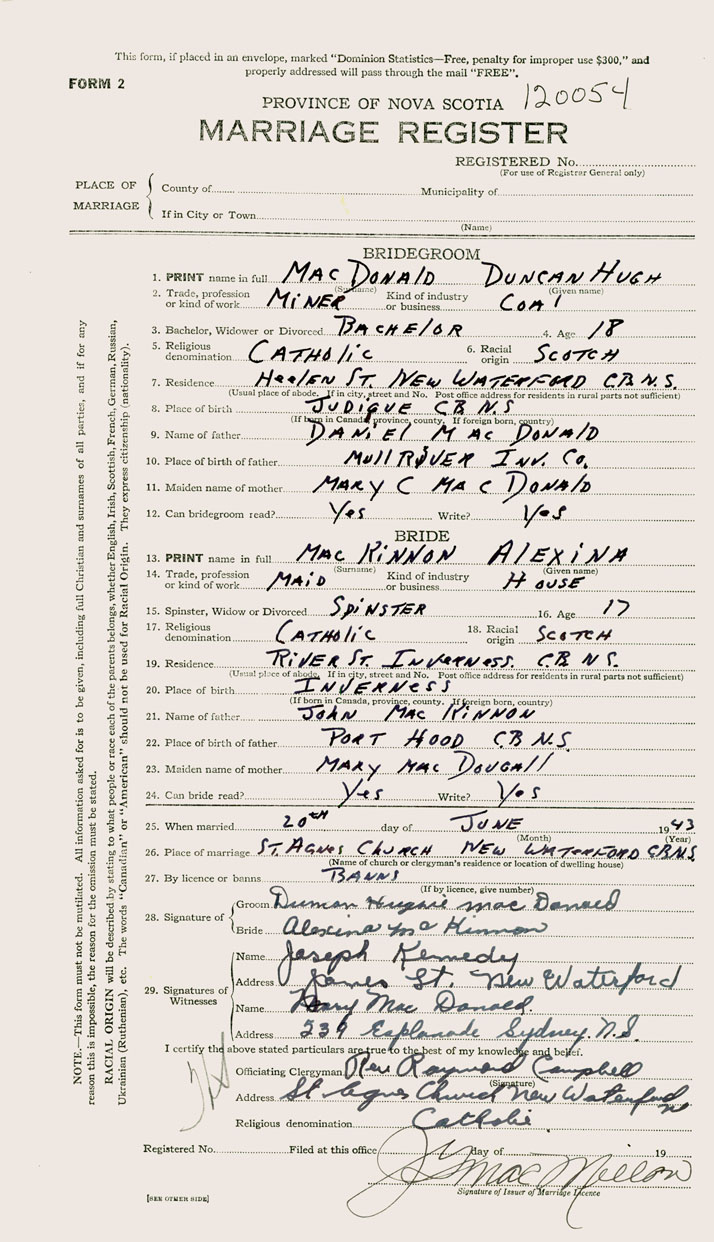 This form, if placed in an envelope, marked "Dominion Statistics—Free, penalty for improper use $300," and
properly addressed will pass through the mail "FREE".
FORM 2
PROVINCE OF NOVA SCOTIA 120054
MARRIAGE REGISTER
REGISTERED No.
(For use of Registrar General only)
PLACE OF MARRIAGE
County of Municipality of
If in City or Town
(Name)
BRIDEGROOM
1. PRINT name in full MAC DONALD DUNCAN HUGH
(Surname) (Given name)
2. Trade, profession or kind of work MINER Kind of industry or business COAl
3. Bachelor, Widower or Divorced BACHELOR 4. Age 18
5. Religious denomination CATHOLIC 6. Racial origin SCOTCH
7. Residence HeeleN ST. NEW WATERFORD C.B. N.S.
(Usual place of abode. If in city, street and No. Post office address for residents in rural parts not sufficient)
8. Place of birth JUDIQUE CB N.S
(If born in Canada, province, county. If foreign born, country)
9. Name of father DANiEl MAC DONALD
10. Place of birth of father Mull RiVER INV. Co.
11. Maiden name of mother MARY C MAC DONALD
12. Can bridegroom read? Yes Write? Yes
BRIDE
13. PRINT name in full MAC KiNNON AlEXINA
(Surname) (Given name)
14. Trade, profession or kind of work MAiD Kind of industry or business HOUSE
15. Spinster, Widow or Divorced SPiNSTER 16. Age 17
17. Religious denomination CATHOLIC 18. Racial origin SCOTCH
19. Residence RiVER ST. INVERNESS. C.B. N.S.
(Usual place of abode. If in city, street and No. Post office address for residents in rural parts not sufficient)
20. Place of birth INVERNESS
(If born in Canada, province, county. If foreign born, country)
21. Name of father JOHN MAC KiNNON
22. Place of birth of father PORT HOOD C.B N.S.
23. Maiden name of mother MARY MAC DOUGAll
24. Can bride read? Yes Write? Yes
25. When married 20TH day of JUNE 1943
(Month) (Year)
26. Place of marriage ST. AGNES CHURCH NEW WATERFORD C.B.N.S.
(Name of church or clergyman's residence or location of dwelling house)
27. By licence or banns BANNS
(If by licence, give number)
28. Signature of
Groom Duncan Hughie Mac Donald
Bride Alexina Mc Kinnon
29. Signatures of Witnesses
Name Joseph Kennedy
Address James St. New Waterford
Name Mary Mac Donald.
Address 239 Esplanade Sydney, N.S.
I certify the above stated particulars are true to the best of my knowledge and belief.
Officiating Clergyman Rev Raymond Campbell
(Signature)
Address St Agnes Church New Waterford NS
Religious denomination Catholic
Registered No. Filed at this office day of 19
Mac Millan
Signature of Issuer of Marriage Licence
[SEE OTHER SIDE]
NOTE.—This form must not be mutilated. All information asked for is to be given, including full Christian and surnames of all parties, and if for any
reason this is impossible, the reason for the omission must be stated.
RACIAL ORIGIN will be described by stating to what people or race each of the parents belongs, whether English, Irish, Scottish, French, German, Russian,
Ukrainian (Ruthenian), etc. The words "Canadian" or "American" should not be used for Racial Origin. They express citizenship (nationality).